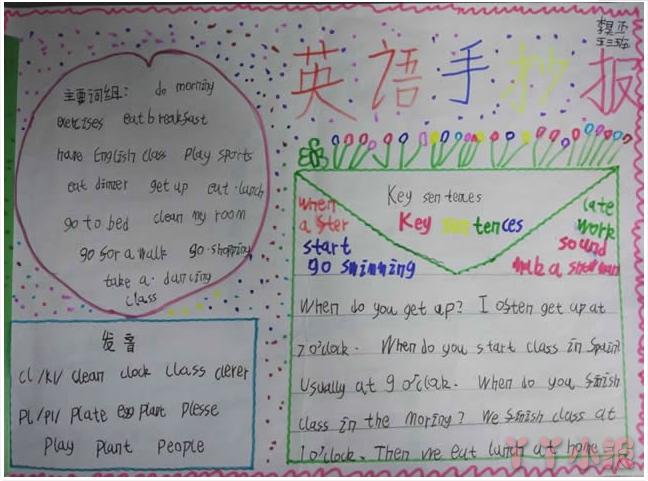 英语手抄报
主要词组： do morning
exercises eat breakfast
have English class play sports
eat dinner get up eat lunch
go to bed clean my room
go for a walk go shopping
take a dancing
class
发音
cl /kl/ clean clock class clever
pl /pl/ plate eggplant plesse
play plant people
Key sentences
Key sentences
when
after
start
go swimming
late
work
sound
When do you get up? I often get up at
7 o'clock. When do you start class in Spain?
Usually at 9 o'clock. When do you finish
class in the moring? We finish class at
1 o'clock. Then we eat lunch at home
丫丫小报